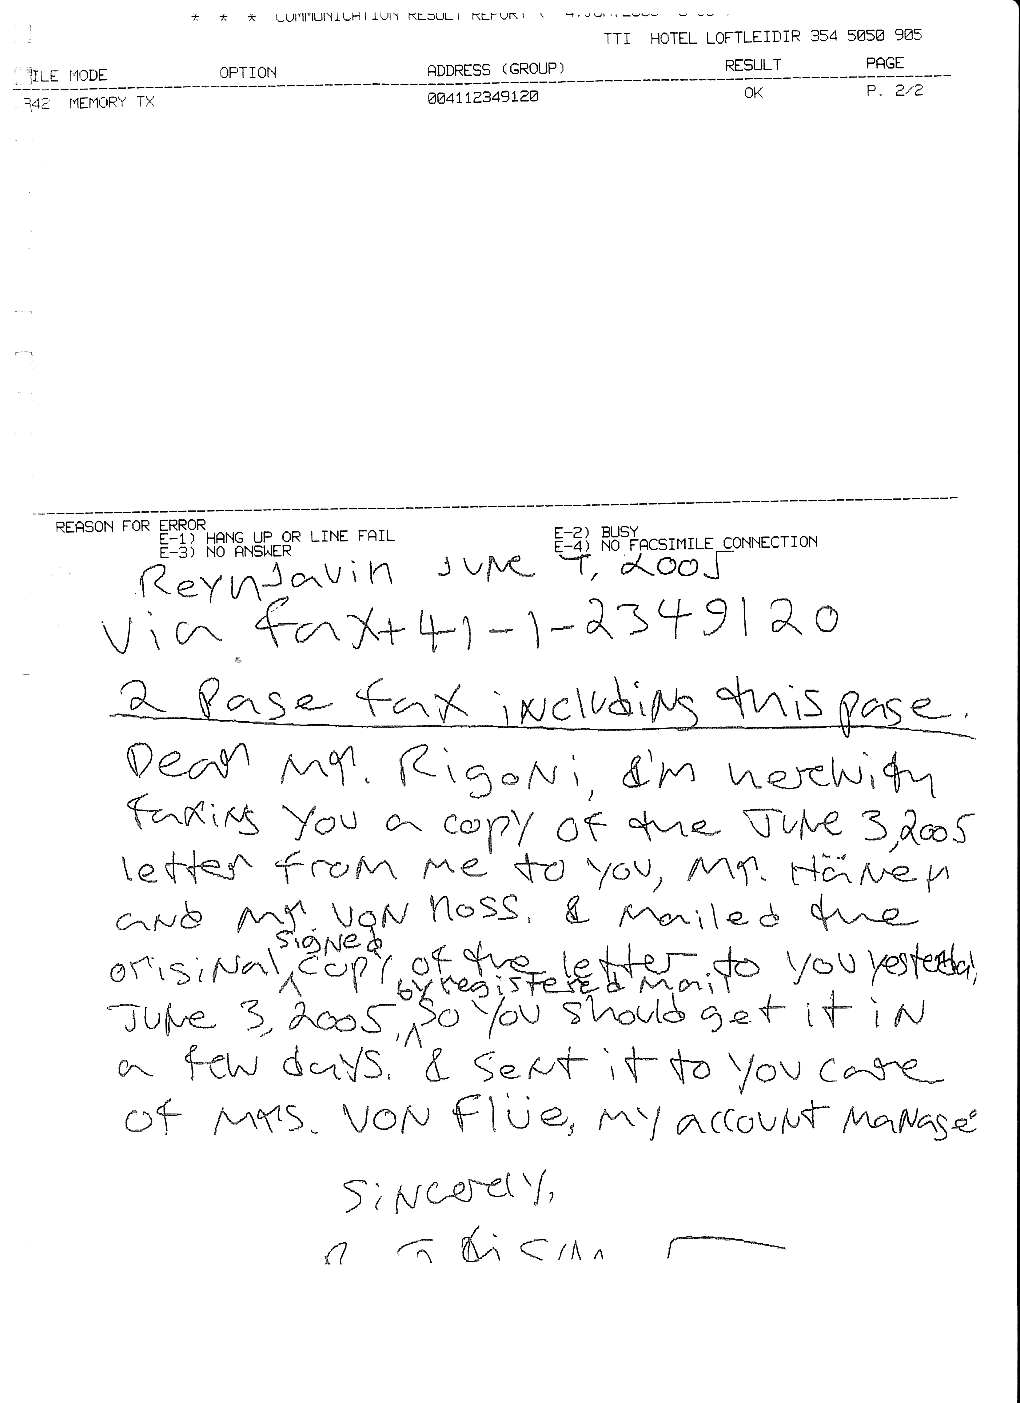 * * * COMMUNICATION RESULT REPORT ( 4.JUN.2005
TTI HOTEL LOFTLEIDIR 354 5050 905
ILE MODE OPTION ADDRESS (GROUP) RESULT PAGE
342 MEMORY TX 004112349120 OK P. 2/2
REASON FOR ERROR
E-1) HANG UP OR LINE FAIL E-2) BUSY
E-3) NO ANSWER E-4) NO FACSIMILE CONNECTION
Reykjavik June 4, 2005
Via fax+41-1-2349120
2 Page fax including this page.
Dear Mr. Rigoni, I'm herewith
faxing you a copy of the June 3, 2005
letter from me to you, Mr. Hänep
and Mr. von Moss. I mailed the
signed
original copy of the letter to you yesterday,
by registered mail
June 3, 2005, so you should get it in
a few days. I sent it to you care
of Mrs. von Flüe, my account manage
Sincerely,